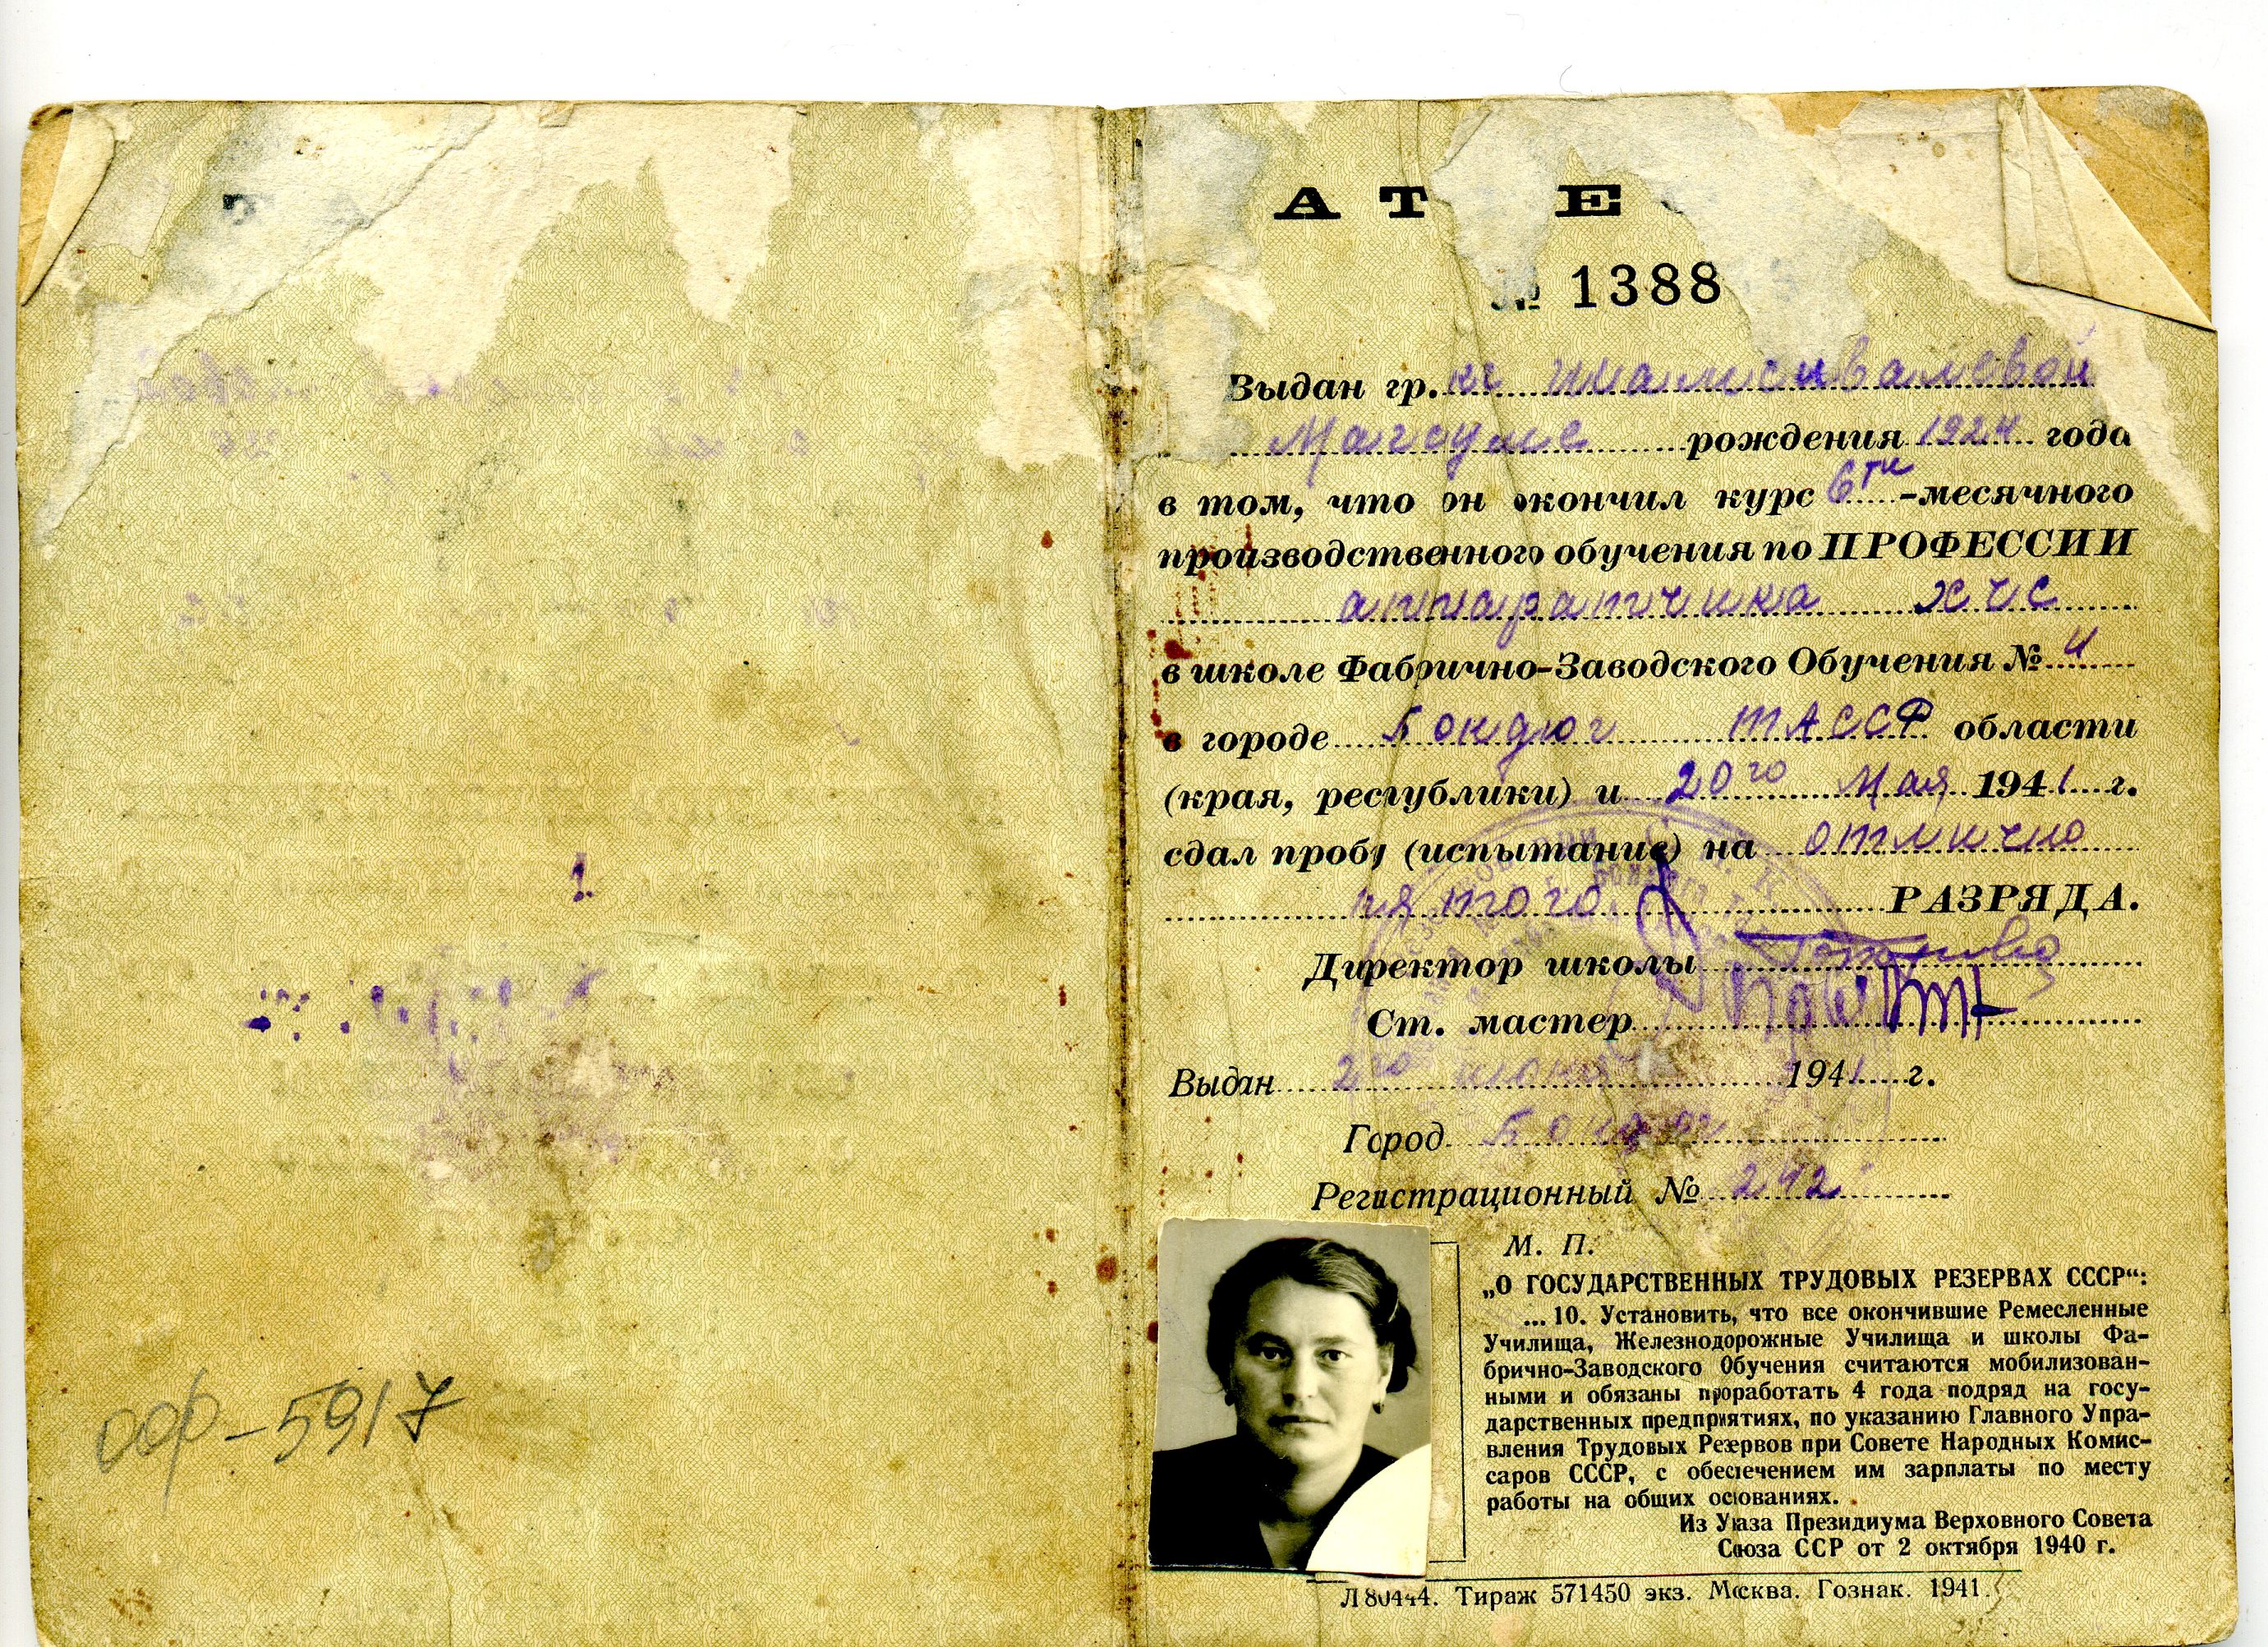 АТ Е
№ 1388
Выдан гр.ке Шамсивалевой
Магсуме рождения 1924 года
в том, что он окончил курс 6ти-месячного
производственного обучения по ПРОФЕССИИ
аппаратчика хчс
в школе Фабрично-Заводского Обучения № 4
в городе Бондюг ТАССР области
(края, республики) и 20го Мая 1941 г.
сдал пробу (испытание) на отлично
пятого РАЗРЯДА.
Директор школы
Ст. мастер
Выдан 2го июня 1941 г.
Город Бондюг
Регистрационный № 242
М. П.
„О ГОСУДАРСТВЕННЫХ ТРУДОВЫХ РЕЗЕРВАХ СССР“:
...10. Установить, что все окончившие Ремесленные
Училища, Железнодорожные Училища и школы Фа-
брично-Заводского Обучения считаются мобилизован-
ными и обязаны проработать 4 года подряд на госу-
дарственных предприятиях, по указанию Главного Упра-
вления Трудовых Резервов при Совете Народных Комис-
саров СССР, с обеспечением им зарплаты по месту
работы на общих основаниях.
Из Указа Президиума Верховного Совета
Союза ССР от 2 октября 1940 г.
Л 80444. Тираж 571450 экз. Москва. Гознак. 1941.
оф-5917